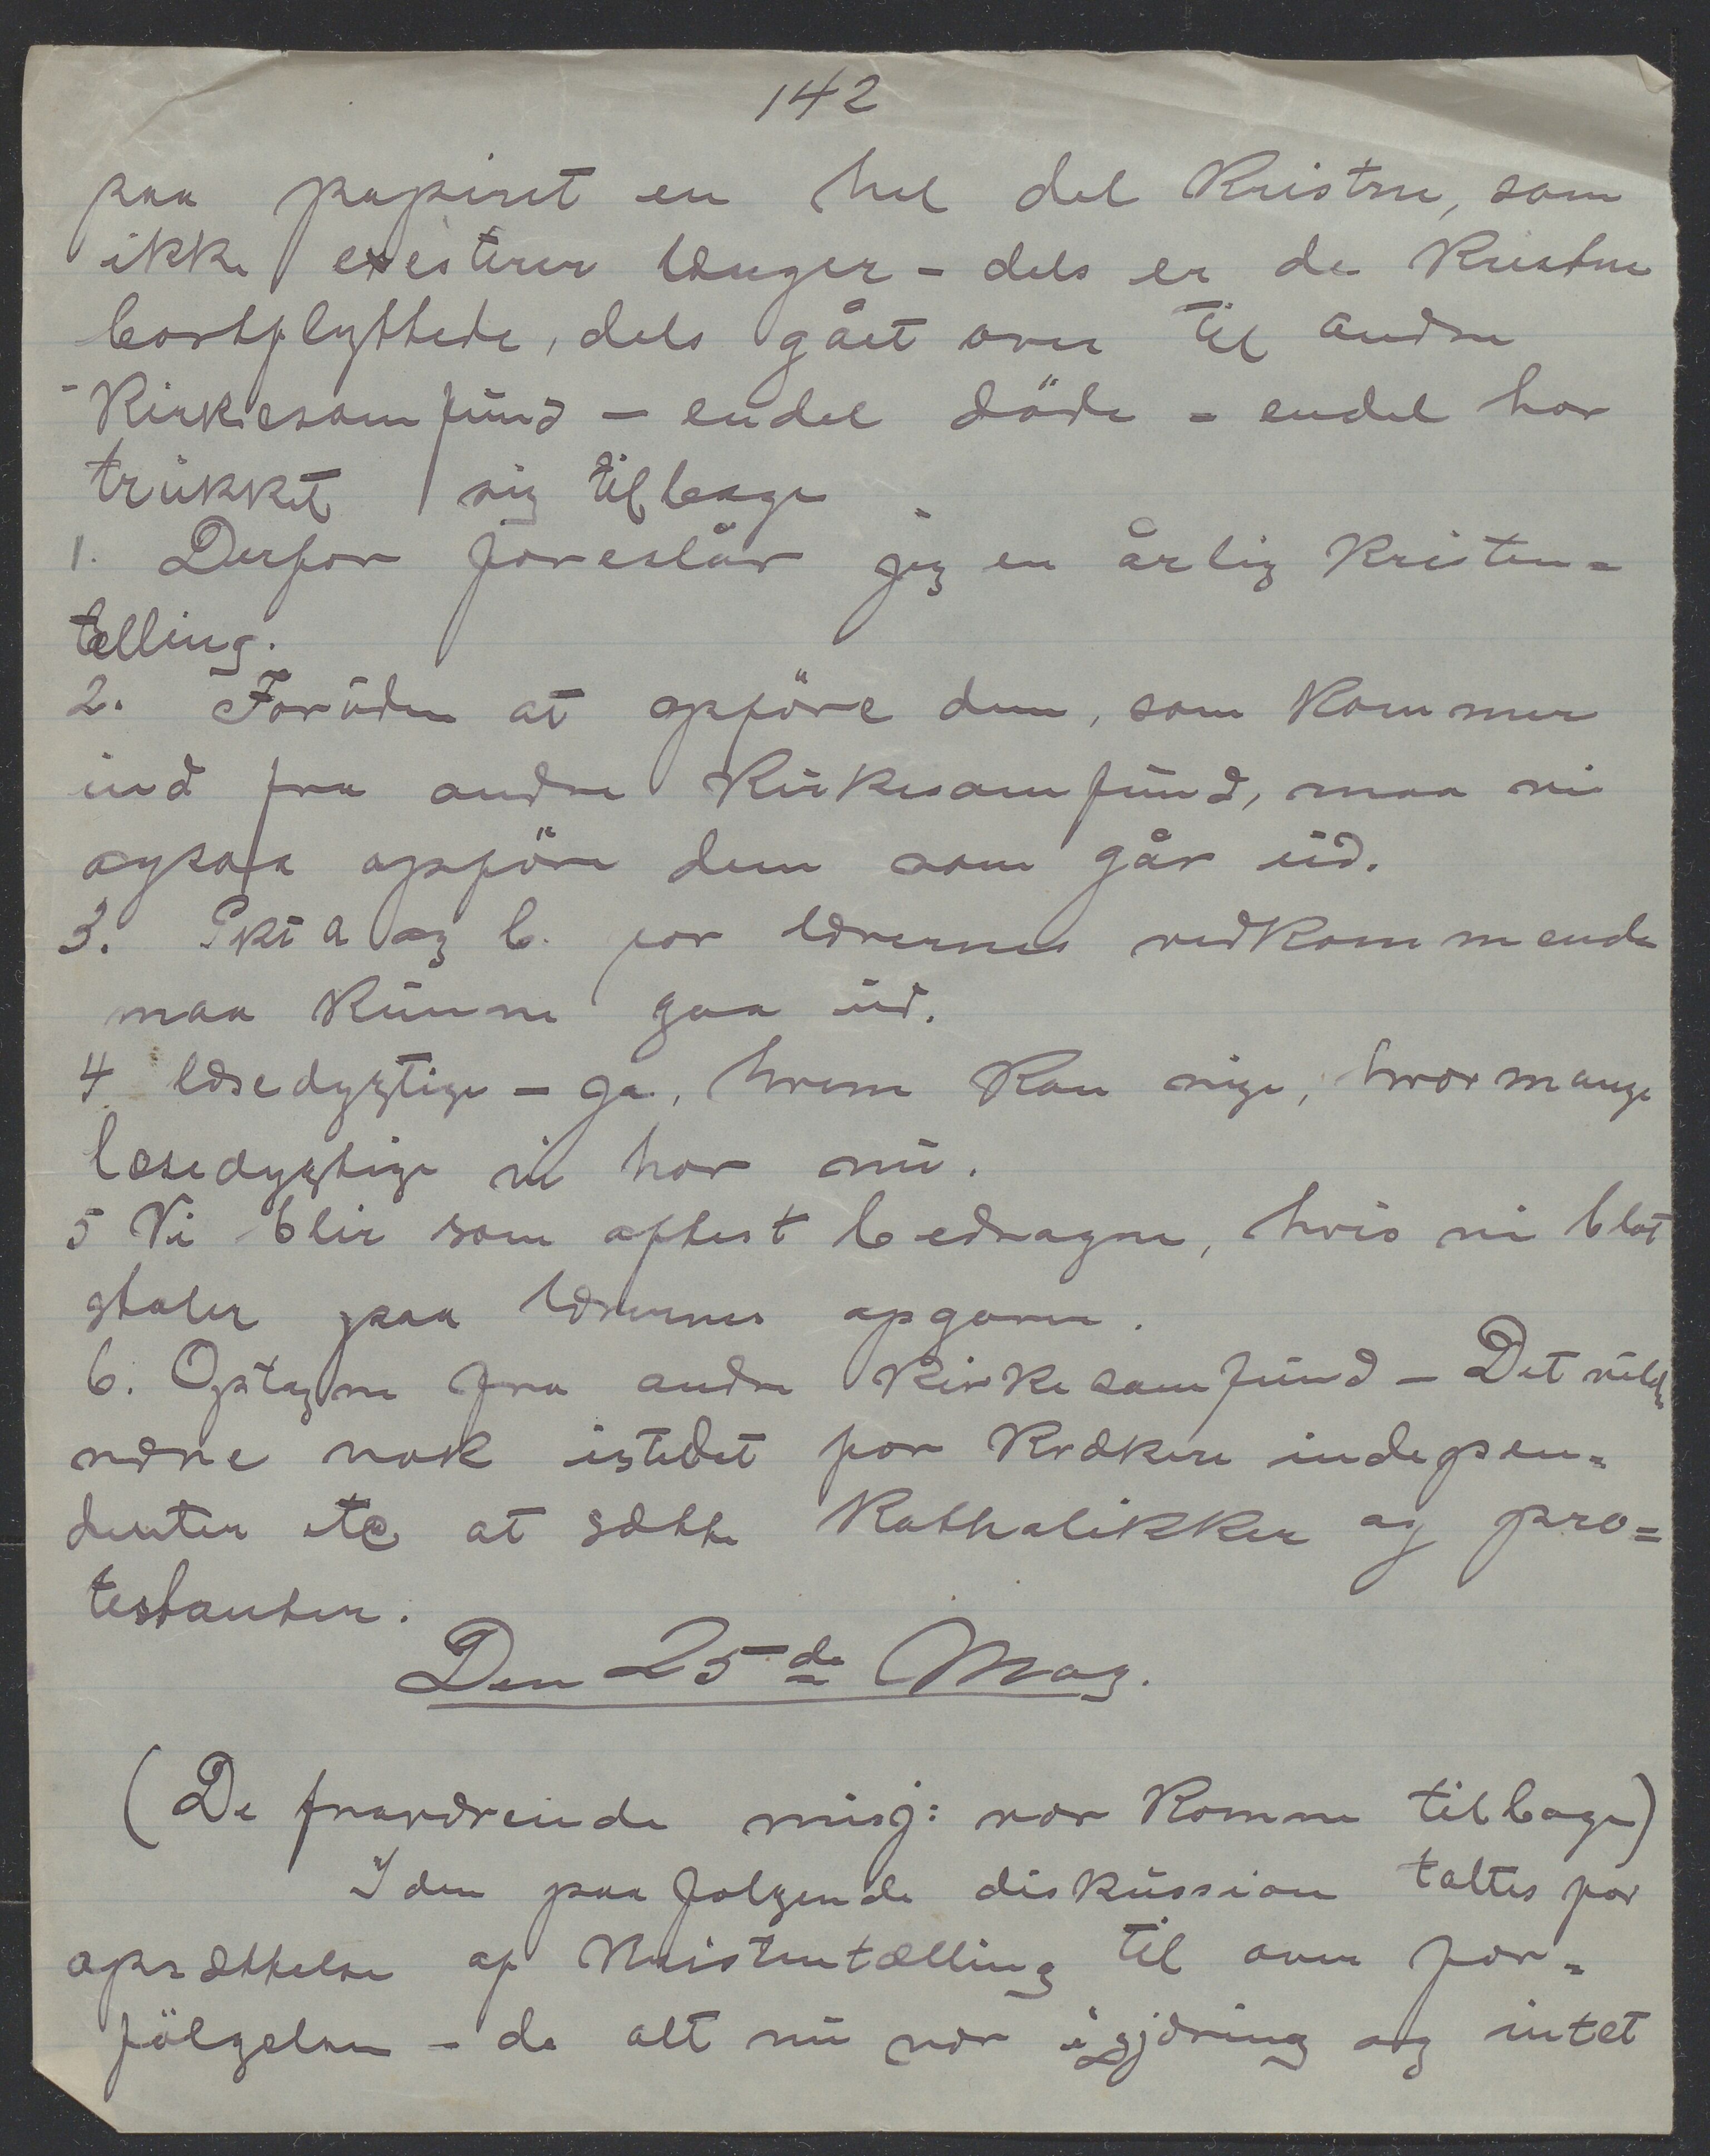 142
paa papiret en hel del Kristne, som
ikke existerer længer - dels er de Kristne
bortflyttede, dels gået over til andre
Kirkesamfund - endel döde - endel har
trukket sig tilbage
1. Derfor foreslår jeg en årlig Kristen=
tælling.
2. Foruden at opföre dem, som Kommer
ind fra andre Kirkesamfund, maa vi
ogsaa opföre dem som går ud.
3. Pkt a og b. for lærernes vedkommende
maa Kunne gaa ud.
4 læsedygtige - ja, hvem Kan sige, hvor mange
læsedygtige vi har nu.
5 Vi blir som oftest bedragne, hvis vi blot
stoler paa lærernes opgaver.
6. Optagne fra andre Kirkesamfund - Det vilde
være nok istedet for Kvækere indepen=
denter etc at sætte Katholikker og pro=
testanter.
Den 25de May.
(De fraværende misj: var Komne tilbage)
I den paafolgende diskussion taltes for
opsættelse af Kristentælling til over for=
fölgelsen - da alt nu var i gjæring og intet